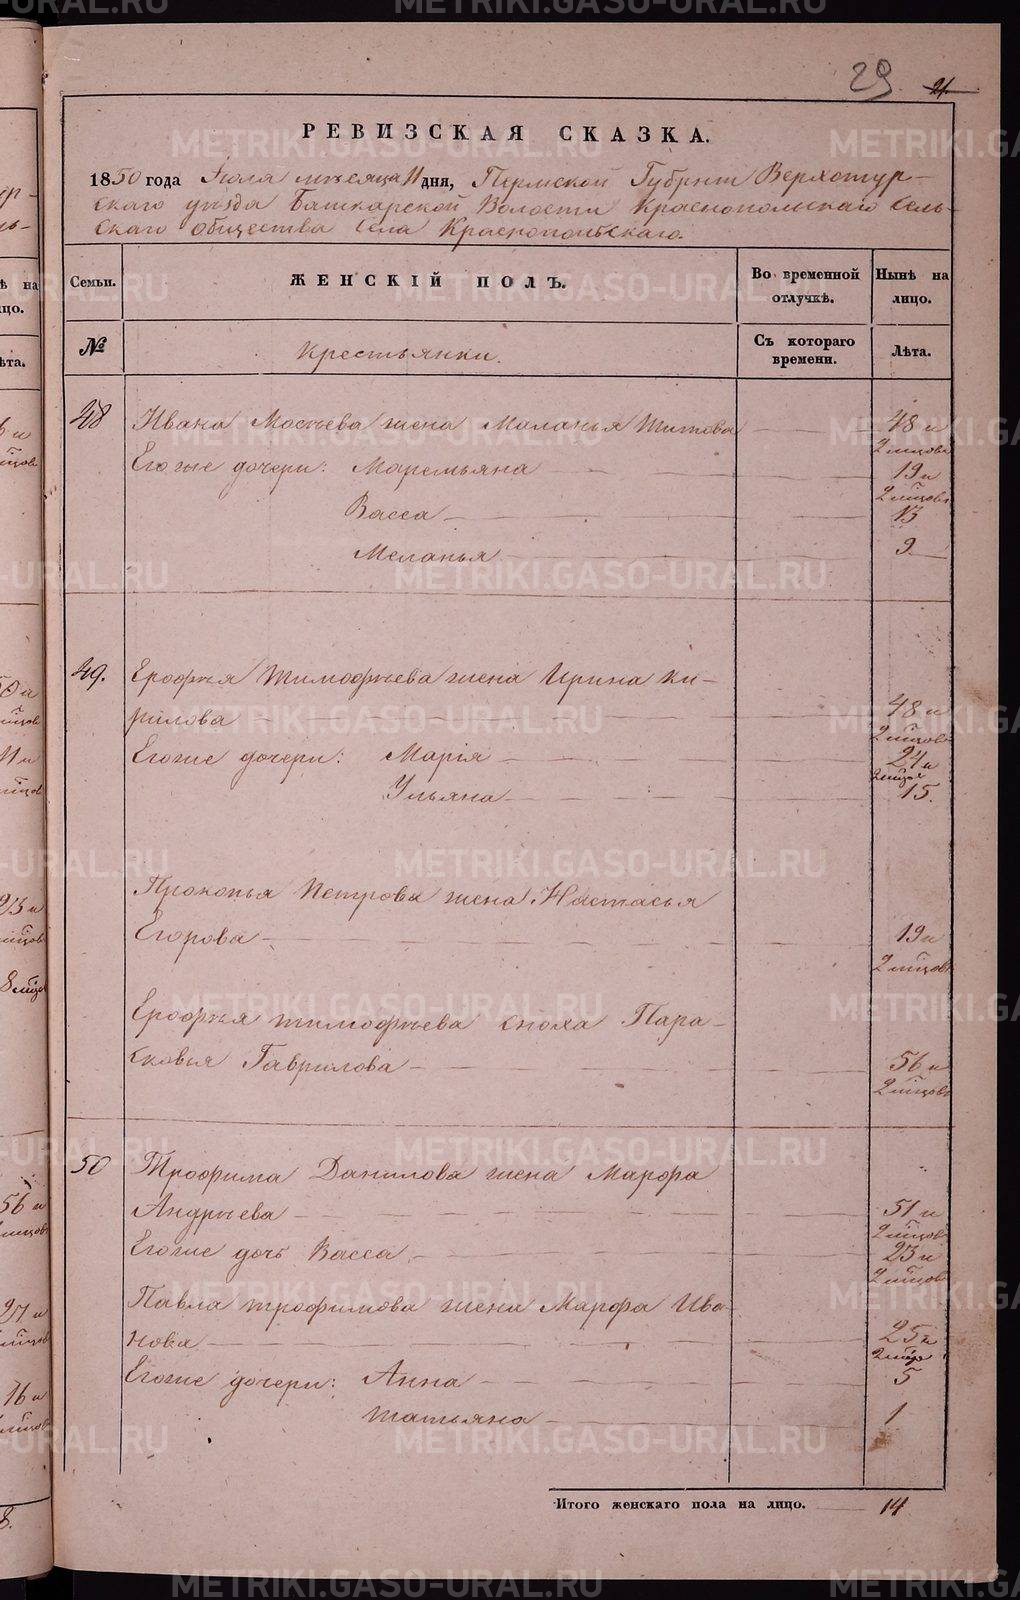 29. 21.
РЕВИЗСКАЯ СКАЗКА.
1850 года Іюля мѣсяца 11 дня, Пермской Губрніи Верхотур-
скаго уѣзда Башкарской Волости Краснопольскаго Сель-
скаго общества Села Краснопольскаго.
Семьи. ЖЕНСКІЙ ПОЛЪ. Во временной отлучкѣ. Нынѣ на лицо.
№ Крестьянки. Съ котораго времени. Лѣта.
48 Ивана Мосѣева жена Маланья Титова 48 и
2 мѣсцовъ
Егоже дочери: Маремьяна 19 и
2 мѣсцовъ
Васса 13
Меланья 9
49. Ерофѣя Тимофѣева жена Ирина Ки-
рилова 48 и
2 мѣсцовъ
Егоже дочери: Марія 24 и
2 мѣсцов
Ульяна 15.
Прокопья Петрова жена Настасья
Егорова 19 и
2 мѣсцовъ
Ерофѣя тимофѣева сноха Пара-
сковья Гаврилова 56 и
2 мѣсцовъ
50 Трофима Данилова жена Марфа
Андрѣева 51 и
2 мѣсцовъ
Егоже дочь Васса 23 и
2 мѣсцовъ
Павла трофимова жена Марфа Ива-
нова 25 и
2 мѣсц
Егоже дочери: Анна 5
татьяна 1
Итого женскаго пола на лицо. 14
METRIKI.GASO-URAL.RU